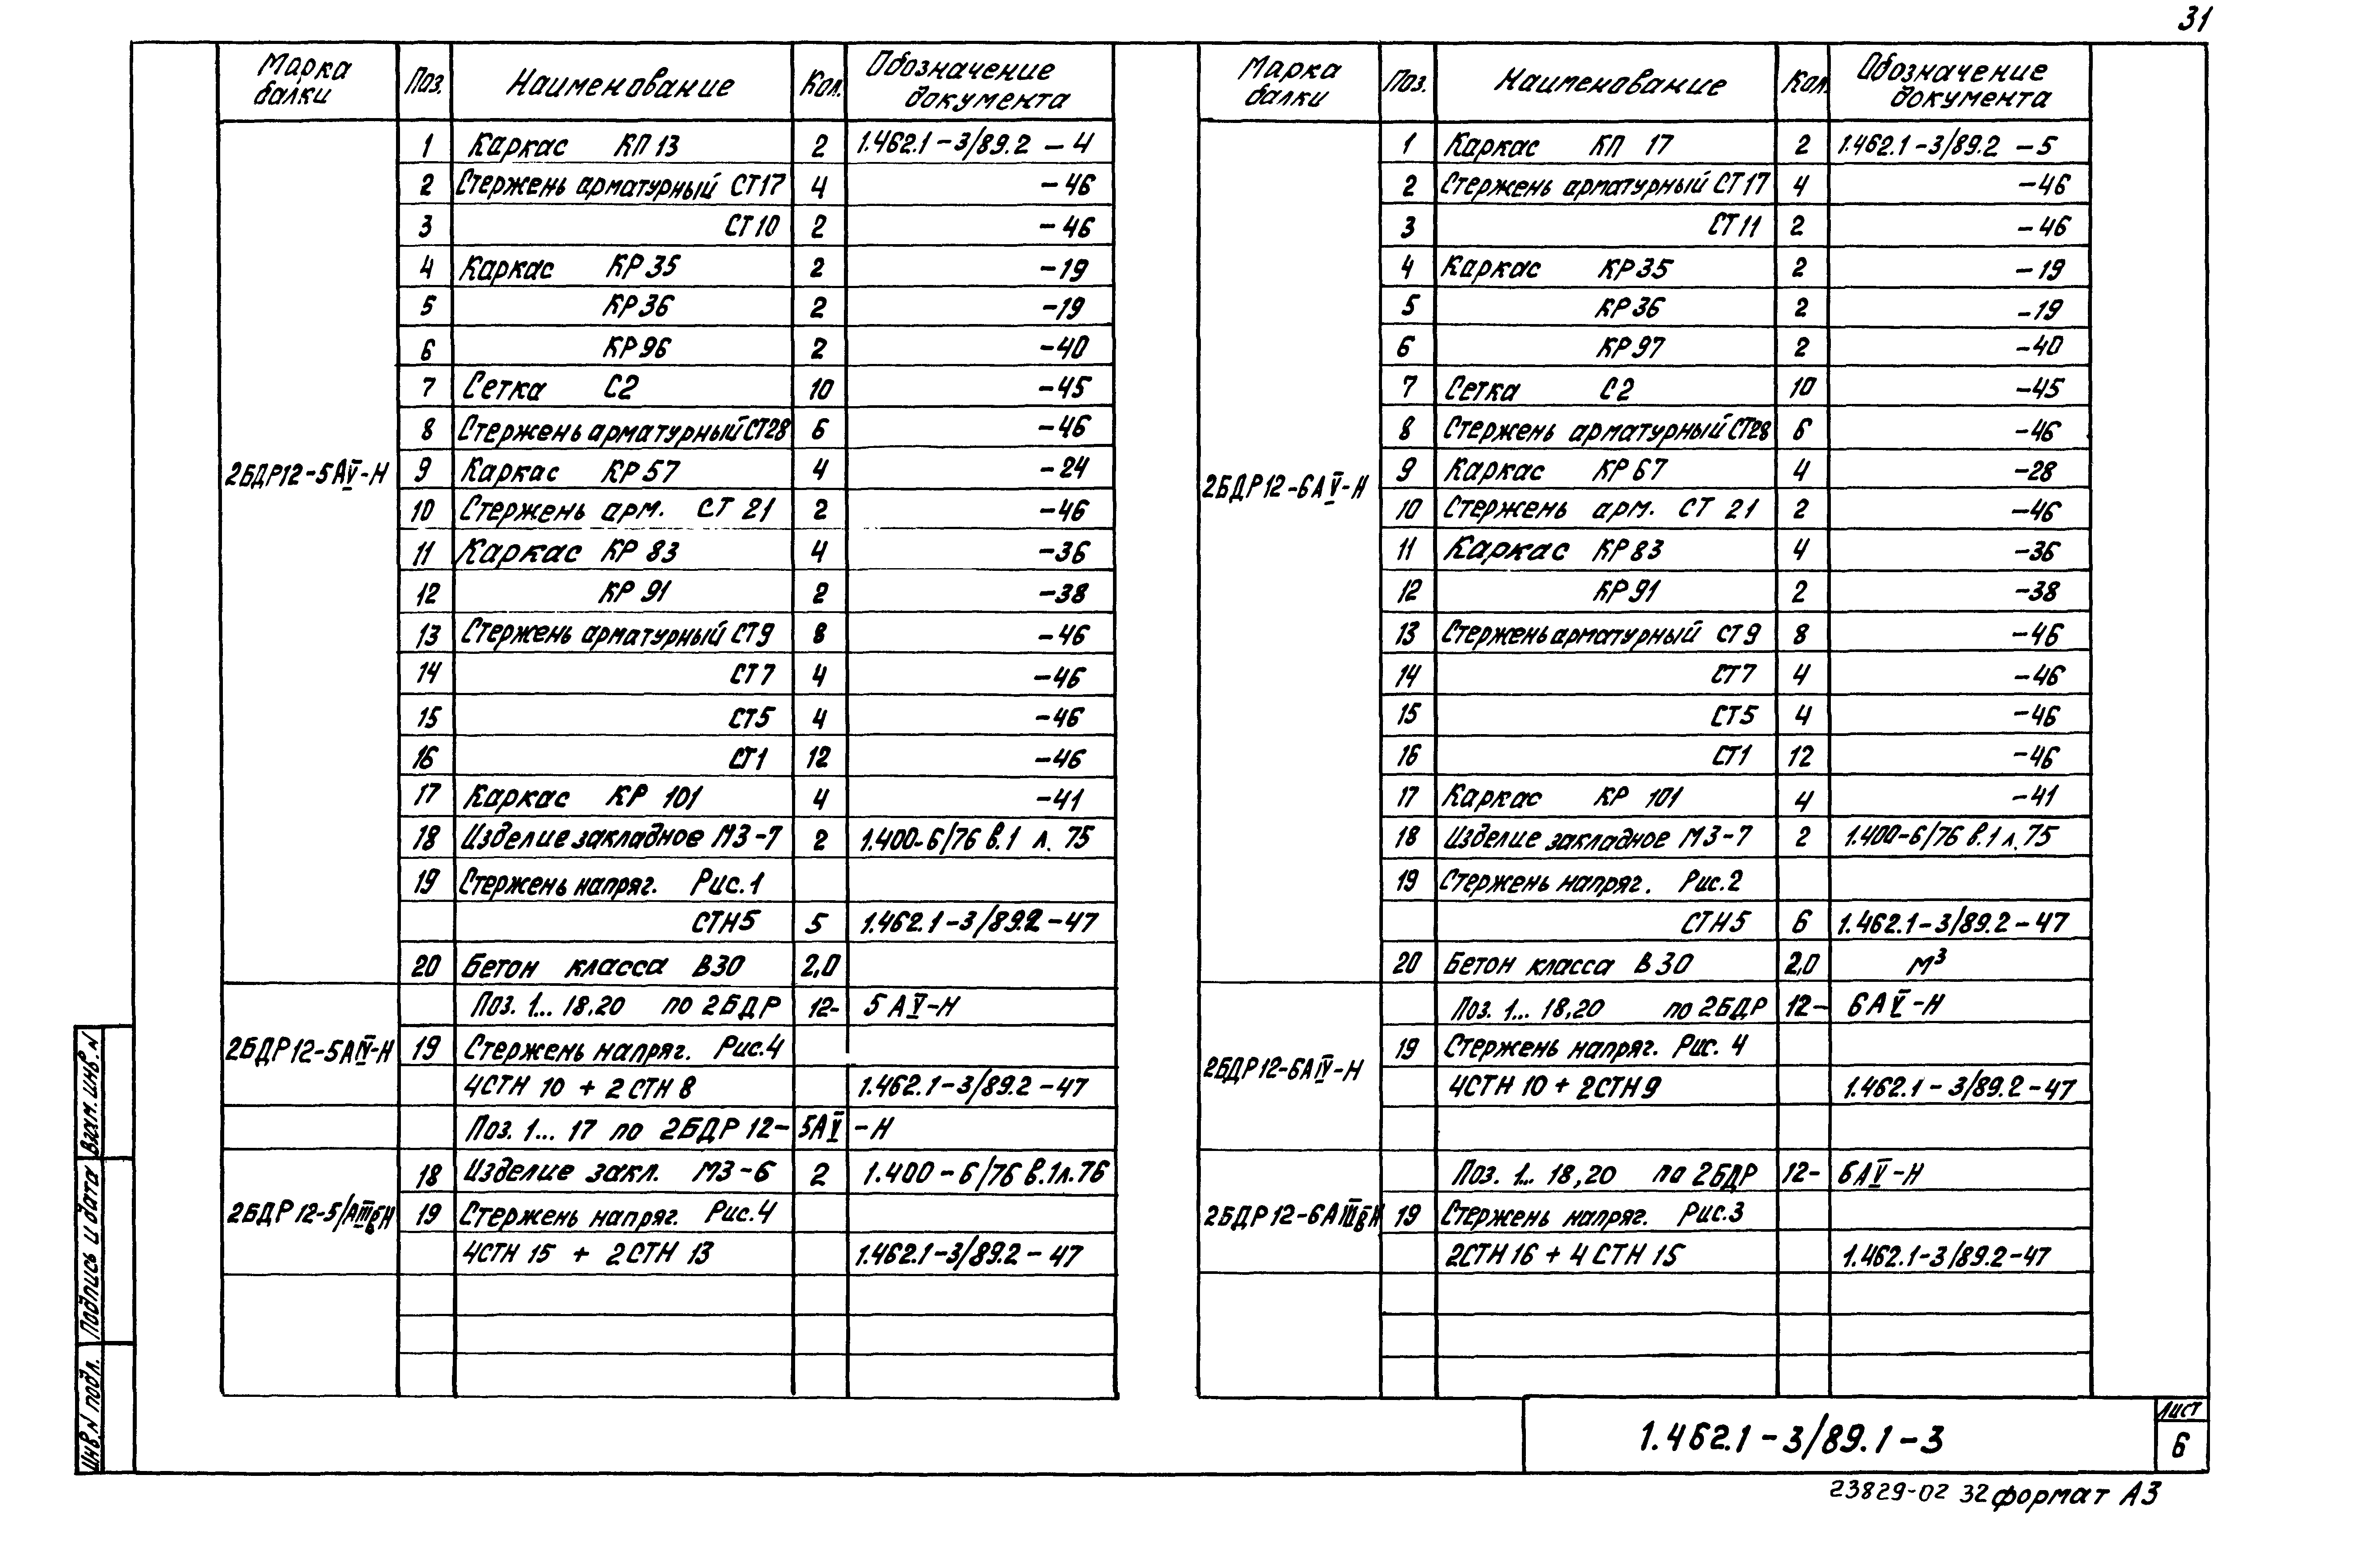 31
Марка балки Поз. Наименование Кол. Обозначение документа
2БДР12-5АV-Н
1 Каркас КП 13 2 1.462.1-3/89.2 -4
2 Стержень арматурный СТ17 4 -46
3 СТ10 2 -46
4 Каркас КР35 2 -19
5 КР36 2 -19
6 КР96 2 -40
7 Сетка С2 10 -45
8 Стержень арматурный СТ28 6 -46
9 Каркас КР57 4 -24
10 Стержень арм. СТ 21 2 -46
11 Каркас КР 83 4 -36
12 КР 91 2 -38
13 Стержень арматурный СТ9 8 -46
14 СТ7 4 -46
15 СТ5 4 -46
16 СТ1 12 -46
17 Каркас КР 101 4 -41
18 Изделие закладное МЗ-7 2 1.400-6/76 в.1 л. 75
19 Стержень напряг. Рис.1
СТН5 5 1.462.1-3/89.2-47
20 Бетон класса В30 2,0
2БДР12-5АIV-Н
Поз. 1... 18,20 по 2БДР 12- 5АV-Н
19 Стержень напряг. Рис.4
4СТН 10 + 2 СТН 8 1.462.1-3/89.2-47
Поз. 1... 17 по 2БДР 12- 5АV -Н
2БДР12-5/АIIIвН
18 Изделие закл. МЗ-6 2 1.400-6/76 в.1л.76
19 Стержень напряг. Рис.4
4СТН 15 + 2СТН 13 1.462.1-3/89.2-47
Марка балки Поз. Наименование Кол. Обозначение документа
2БДР12-6АV-Н
1 Каркас КП 17 2 1.462.1-3/89.2 -5
2 Стержень арматурный СТ17 4 -46
3 СТ11 2 -46
4 Каркас КР35 2 -19
5 КР36 2 -19
6 КР97 2 -40
7 Сетка С2 10 -45
8 Стержень арматурный СТ28 6 -46
9 Каркас КР67 4 -28
10 Стержень арм. СТ 21 2 -46
11 Каркас КР83 4 -36
12 КР91 2 -38
13 Стержень арматурный СТ9 8 -46
14 СТ7 4 -46
15 СТ5 4 -46
16 СТ1 12 -46
17 Каркас КР 101 4 -41
18 Изделие закладное МЗ-7 2 1.400-6/76 в.1 л.75
19 Стержень напряг. Рис.2
СТН5 6 1.462.1-3/89.2-47
20 Бетон класса В30 2,0 м³
2БДР12-6АIV-Н
Поз. 1... 18,20 по 2БДР 12- 6АV-Н
19 Стержень напряг. Рис. 4
4СТН 10 + 2СТН9 1.462.1-3/89.2-47
2БДР12-6АIIIвН
Поз. 1... 18,20 по 2БДР 12- 6АV-Н
19 Стержень напряг. Рис.3
2СТН16 + 4 СТН 15 1.462.1-3/89.2-47
Взам. инв. N
Подпись и дата
Инв. N подл.
1.462.1-3/89.1-3
Лист
6
23829-02 32 формат А3